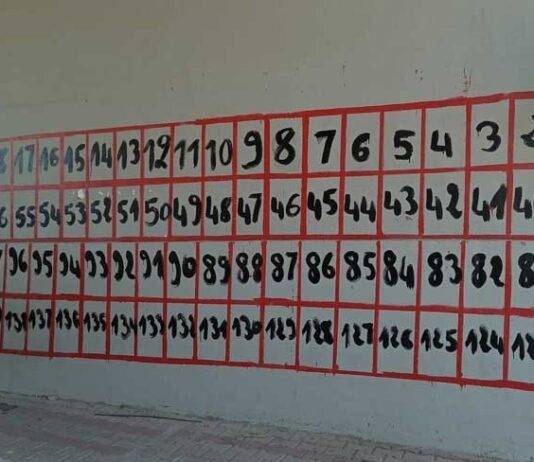 17 16 15 14 13 12 11 10 9 8 7 6 5 4 3
55 54 53 52 51 50 49 48 47 46 45 44 43 42 41
96 95 94 93 92 91 90 89 88 87 86 85 84 83 82
138 137 136 135 134 133 132 131 130 129 128 127 126 125 124